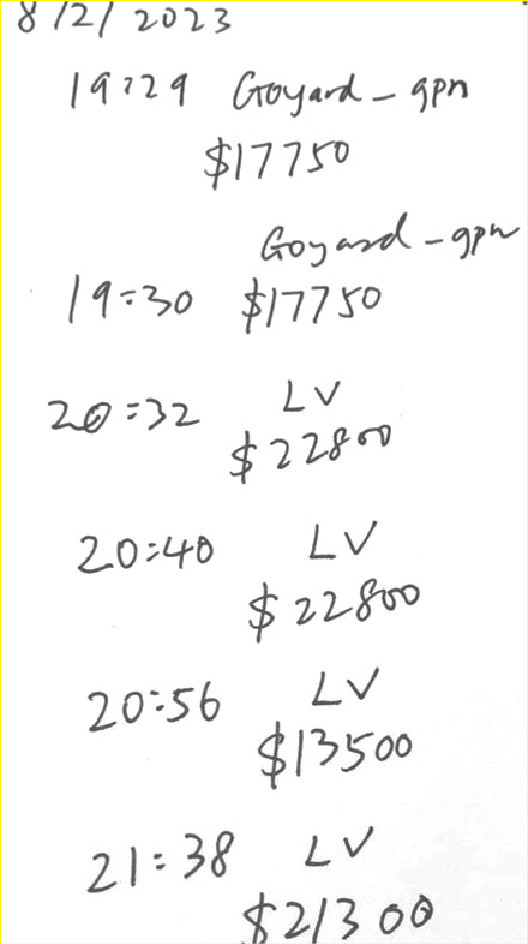 8/2/2023
19:29 Goyard - gpn
$17750
Goyard - gpn
19:30 $17750
20:32 LV
$22800
20:40 LV
$22800
20:56 LV
$13500
21:38 LV
$21300